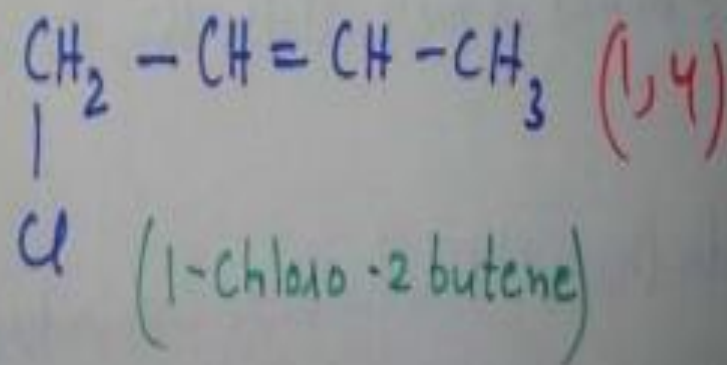 CH₂ - CH = CH - CH₃ (1,4)
|
Cl
(1-Chloro-2 butene)